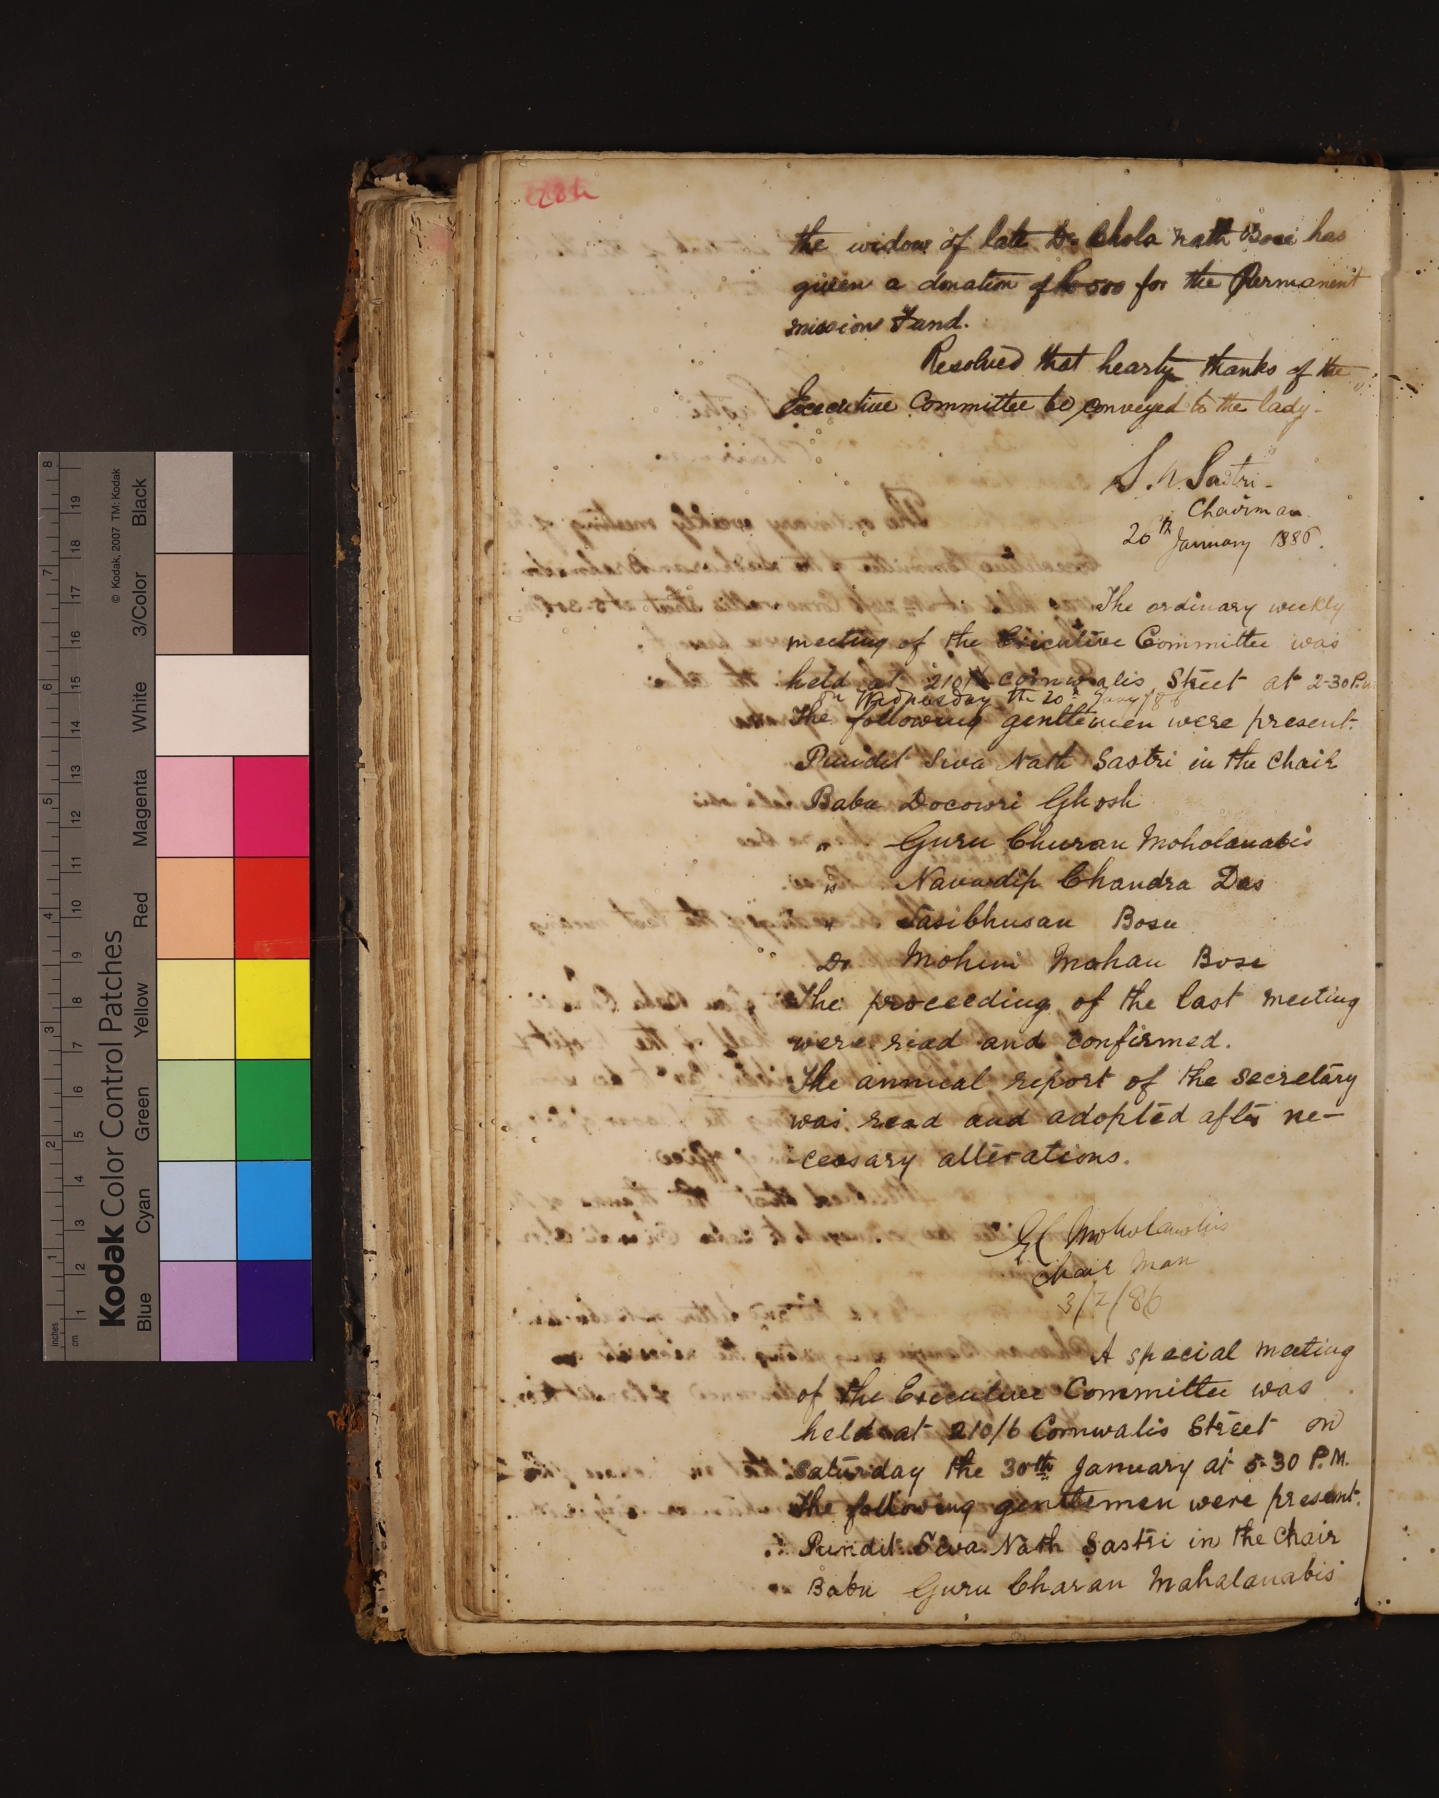 the widow of late Dr Bhola Nath Bose has
given a donation of Rs 500 for the Permanent
mission Fund.
Resolved that hearty thanks of the
Executive Committee be conveyed to the lady.
S. N. Sastri.
Chairman
20th January 1886.
The ordinary weekly
meeting of the Executive Committee was
held at 210/6 cornwalis Street at 2-30 P.M
on Wednesday the 20th Jany/86
The following genttemen were present.
Pundit Siva Nath Sastri in the Chair
Babu Docowri Ghosh
" Guru Churan Moholanabis
" Navadip Chandra Das
" Sasibhusan Bosu
Dr Mohini Mohan Bose
The proceeding of the last meeting
were read and confirmed.
The annual report of the secretary
was read and adopted after ne-
cessary alterations.
G C Moholanobis
Chair Man
3/2/86
A special meeting
of the Executive Committee was
held at 210/6 Cornwalis Street on
Saturday the 30th January at 5-30 P.M.
The following genttemen were present.
Pundit Siva Nath Sastri in the Chair
Babu Guru Charan Mahalanabis
Kodak Color Control Patches
© Kodak, 2007 TM: Kodak
Blue Cyan Green Yellow Red Magenta White 3/Color Black
inches 1 2 3 4 5 6 7 8
cm 1 2 3 4 5 6 7 8 9 10 11 12 13 14 15 16 17 18 19